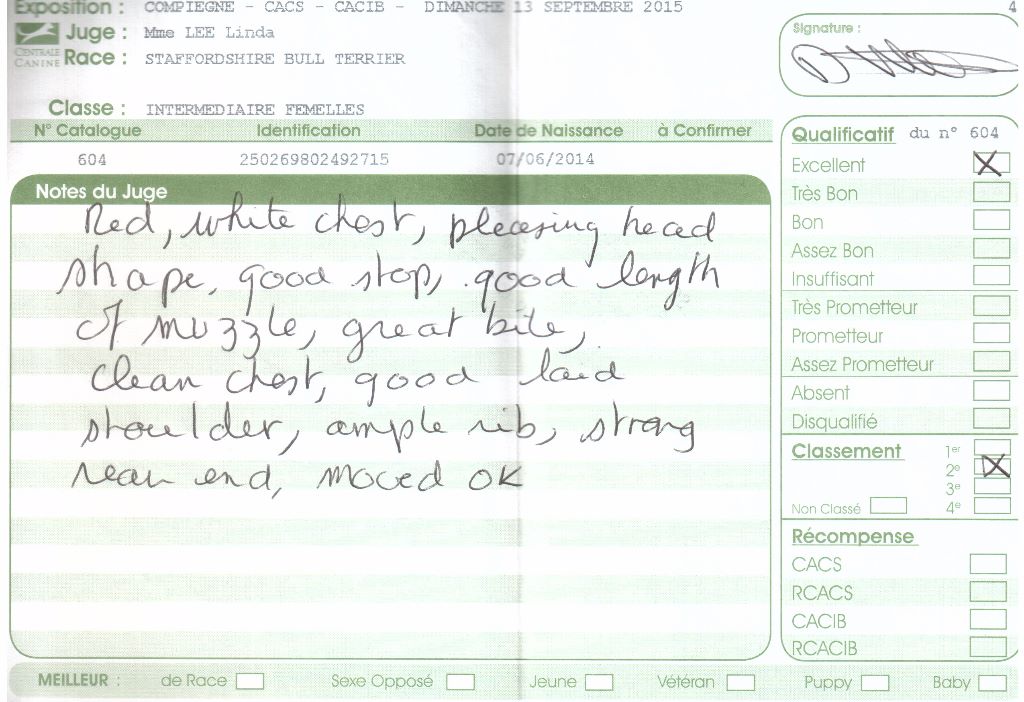 Exposition : COMPIEGNE - CACS - CACIB - DIMANCHE 13 SEPTEMBRE 2015 4
Juge : Mme LEE Linda
CENTRALE CANINE
Race : STAFFORDSHIRE BULL TERRIER
Classe : INTERMEDIAIRE FEMELLES
N° Catalogue Identification Date de Naissance à Confirmer
604 250269802492715 07/06/2014
Notes du Juge
Red, white chest, pleasing head
shape, good stop, good length
of muzzle, great bite,
Clean chest, good laid
shoulder, ample rib, strong
rear end, moved OK
Signature :
Qualificatif du n° 604
Excellent X
Très Bon
Bon
Assez Bon
Insuffisant
Très Prometteur
Prometteur
Assez Prometteur
Absent
Disqualifié
Classement 1er
2e X
3e
Non Classé 4e
Récompense
CACS
RCACS
CACIB
RCACIB
MEILLEUR : de Race Sexe Opposé Jeune Vétéran Puppy Baby